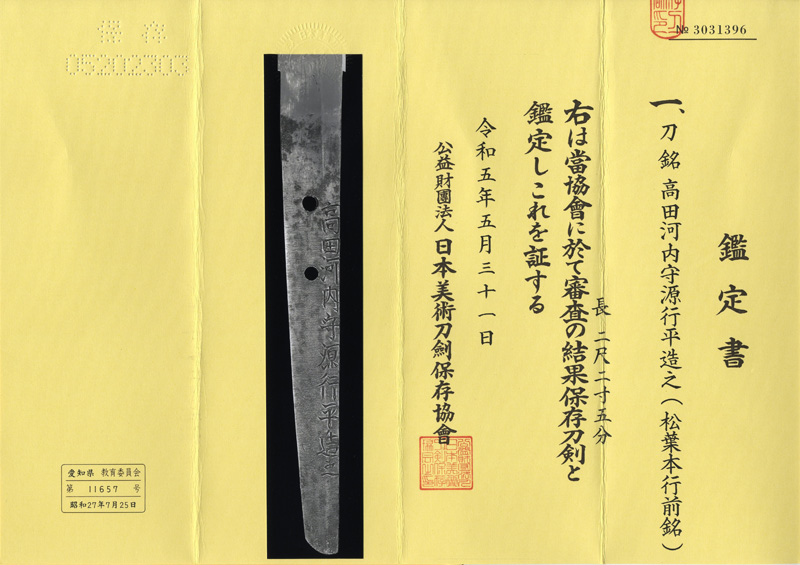 № 3031396
鑑定書
一、刀 銘 高田河内守源行平造之(松葉本行前銘)
長 二尺二寸五分
右は當協會に於て審査の結果保存刀剣と
鑑定しこれを証する
令和五年五月三十一日
公益財團法人 日本美術刀劍保存協會
高田河内守源行平造之
保存
05202303
愛知県 教育委員会
第 11657 号
昭和27年7月25日